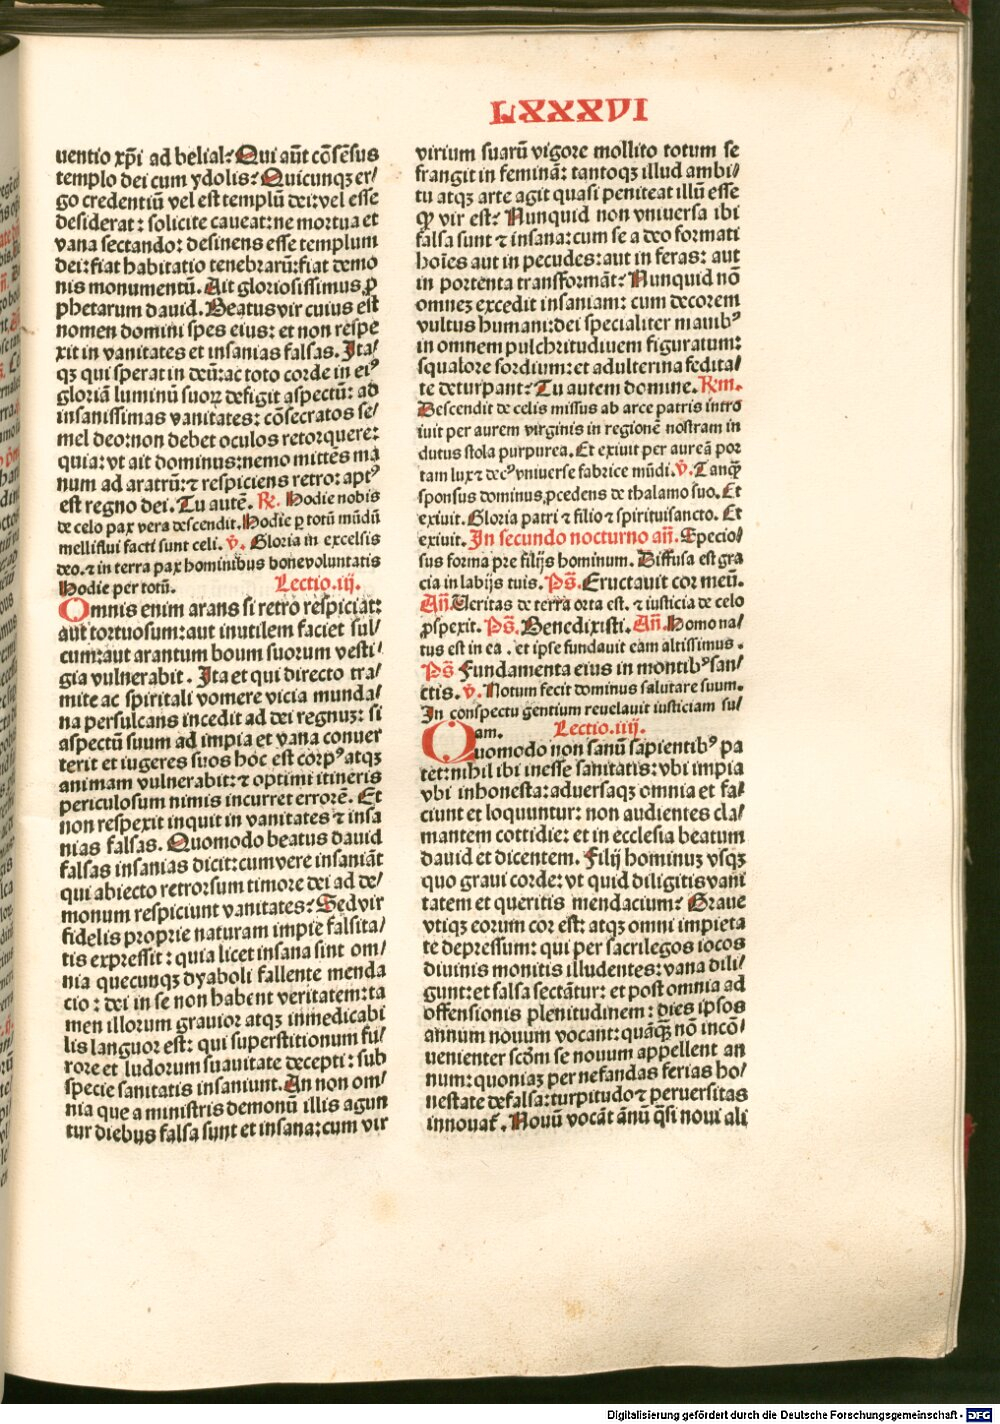 LXXXVI
uentio xp̄i ad belial: Qui aūt cōsēsus
templo dei cum ydolis: Quicunqꝫ er/
go credentiū vel est templū dei: vel esse
desiderat: solicite caueat: ne mortua et
vana sectando: desinens esse templum
dei: fiat habitatio tenebrarū: fiat demo
nis monumentū. Ait gloriosissimus ꝓ
phetarum dauid. Beatus vir cuius est
nomen domini spes eius: et non respe
xit in vanitates et insanias falsas. Ita/
qꝫ qui sperat in deū: ac toto corde in eiꝰ
gloriā luminū suoꝝ defigit aspectū: ad
insanissimas vanitates: cōsecratos se/
mel deo: non debet oculos retorquere:
quia: vt ait dominus: nemo mittēs ma
num ad aratrū: ⁊ respiciens retro: aptꝰ
est regno dei. Tu autē. R̄. Hodie nobis
de celo pax vera descendit. Hodie ꝑ totū mūdū
melliflui facti sunt celi. v̄. Gloria in excelsis
deo. ⁊ in terra pax hominibus bone voluntatis
Hodie per totū. Lectio.iij.
Omnis enim arans si retro respiciat:
aut tortuosum: aut inutilem faciet sul/
cum: aut arantum boum suorum vesti/
gia vulnerabit. Ita et qui directo tra/
mite ac spiritali vomere vicia munda/
na persulcans incedit ad dei regnuꝫ: si
aspectū suum ad impia et vana conuer
terit et iugeres suos hoc est corpꝰ atqꝫ
animam vulnerabit: ⁊ optimi itineris
periculosum nimis incurret errorē. Et
non respexit inquit in vanitates ⁊ insa
nias falsas. Quomodo beatus dauid
falsas insanias dicit: cum vere insaniāt
qui abiecto retrorsum timore dei ad de/
monum respiciunt vanitates: Sed vir
fidelis proprie naturam impie falsita/
tis expressit: quia licet insana sint om/
nia quecunqꝫ dyaboli fallente menda
cio: dei in se non habent veritatem: ta
men illorum grauior atqꝫ inmedicabi
lis languor est: qui superstitionum fu/
rore et ludorum suauitate decepti: sub
specie sanitatis insaniunt. An non om/
nia que a ministris demonū illis agun
tur diebus falsa sunt et insana: cum vir
virium suarū vigore mollito totum se
frangit in feminā: tantoqꝫ illud ambi/
tu atqꝫ arte agit quasi peniteat illū esse
ꝙ vir est: Nunquid non vniuersa ibi
falsa sunt ⁊ insana: cum se a deo formati
hoīes aut in pecudes: aut in feras: aut
in portenta transformāt: Nunquid nō
omneꝫ excedit insaniam: cum decorem
vultus humani: dei specialiter manibꝰ
in omnem pulchritudinem figuratum:
squalore sordium: et adulterina fedita/
te deturpant: Tu autem domine. R̄m.
Descendit de celis missus ab arce patris intro
iuit per aurem virginis in regionē nostram in
dutus stola purpurea. Et exiuit per aureā por
tam lux ⁊ decꝰ vniuerse fabrice mūdi. v̄. Tanqꝫ
sponsus dominus ꝓcedens de thalamo suo. Et
exiuit. Gloria patri ⁊ filio ⁊ spirituisancto. Et
exiuit. In secundo nocturno añ. Specio/
sus forma pre filijs hominum. Diffusa est gra
cia in labijs tuis. Ps̄. Eructauit cor meū.
Añ. Veritas de terra orta est. ⁊ iusticia de celo
ꝓspexit. Ps̄. Benedixisti. Añ. Homo na/
tus est in ea. et ipse fundauit eam altissimus.
Ps̄ Fundamenta eius in montibꝰ san/
ctis. v̄. Notum fecit dominus salutare suum.
In conspectu gentium reuelauit iusticiam su/
am. Lectio.iiij.
Quomodo non sanū sapientibꝰ pa
tet: nihil ibi inesse sanitatis: vbi impia
vbi inhonesta: aduersaqꝫ omnia et fa/
ciunt et loquuntur: non audientes cla/
mantem cottidie: et in ecclesia beatum
dauid et dicentem. Filij hominuꝫ vsqꝫ
quo graui corde: vt quid diligitis vani
tatem et queritis mendacium: Graue
vtiqꝫ eorum cor est: atqꝫ omni impieta
te depressum: qui per sacrilegos iocos
diuinis monitis illudentes: vana dili/
gunt: et falsa sectātur: et post omnia ad
offensionis plenitudinem: dies ipsos
annum nouum vocant: quāqꝫ nō incō/
uenienter scōm se nouum appellent an
num: quoniaꝫ per nefandas ferias ho/
nestate defalsa: turpitudo ⁊ peruersitas
innouat̄. Nouū vocāt ānū q̄si noui ali
Digitalisierung gefördert durch die Deutsche Forschungsgemeinschaft - DFG